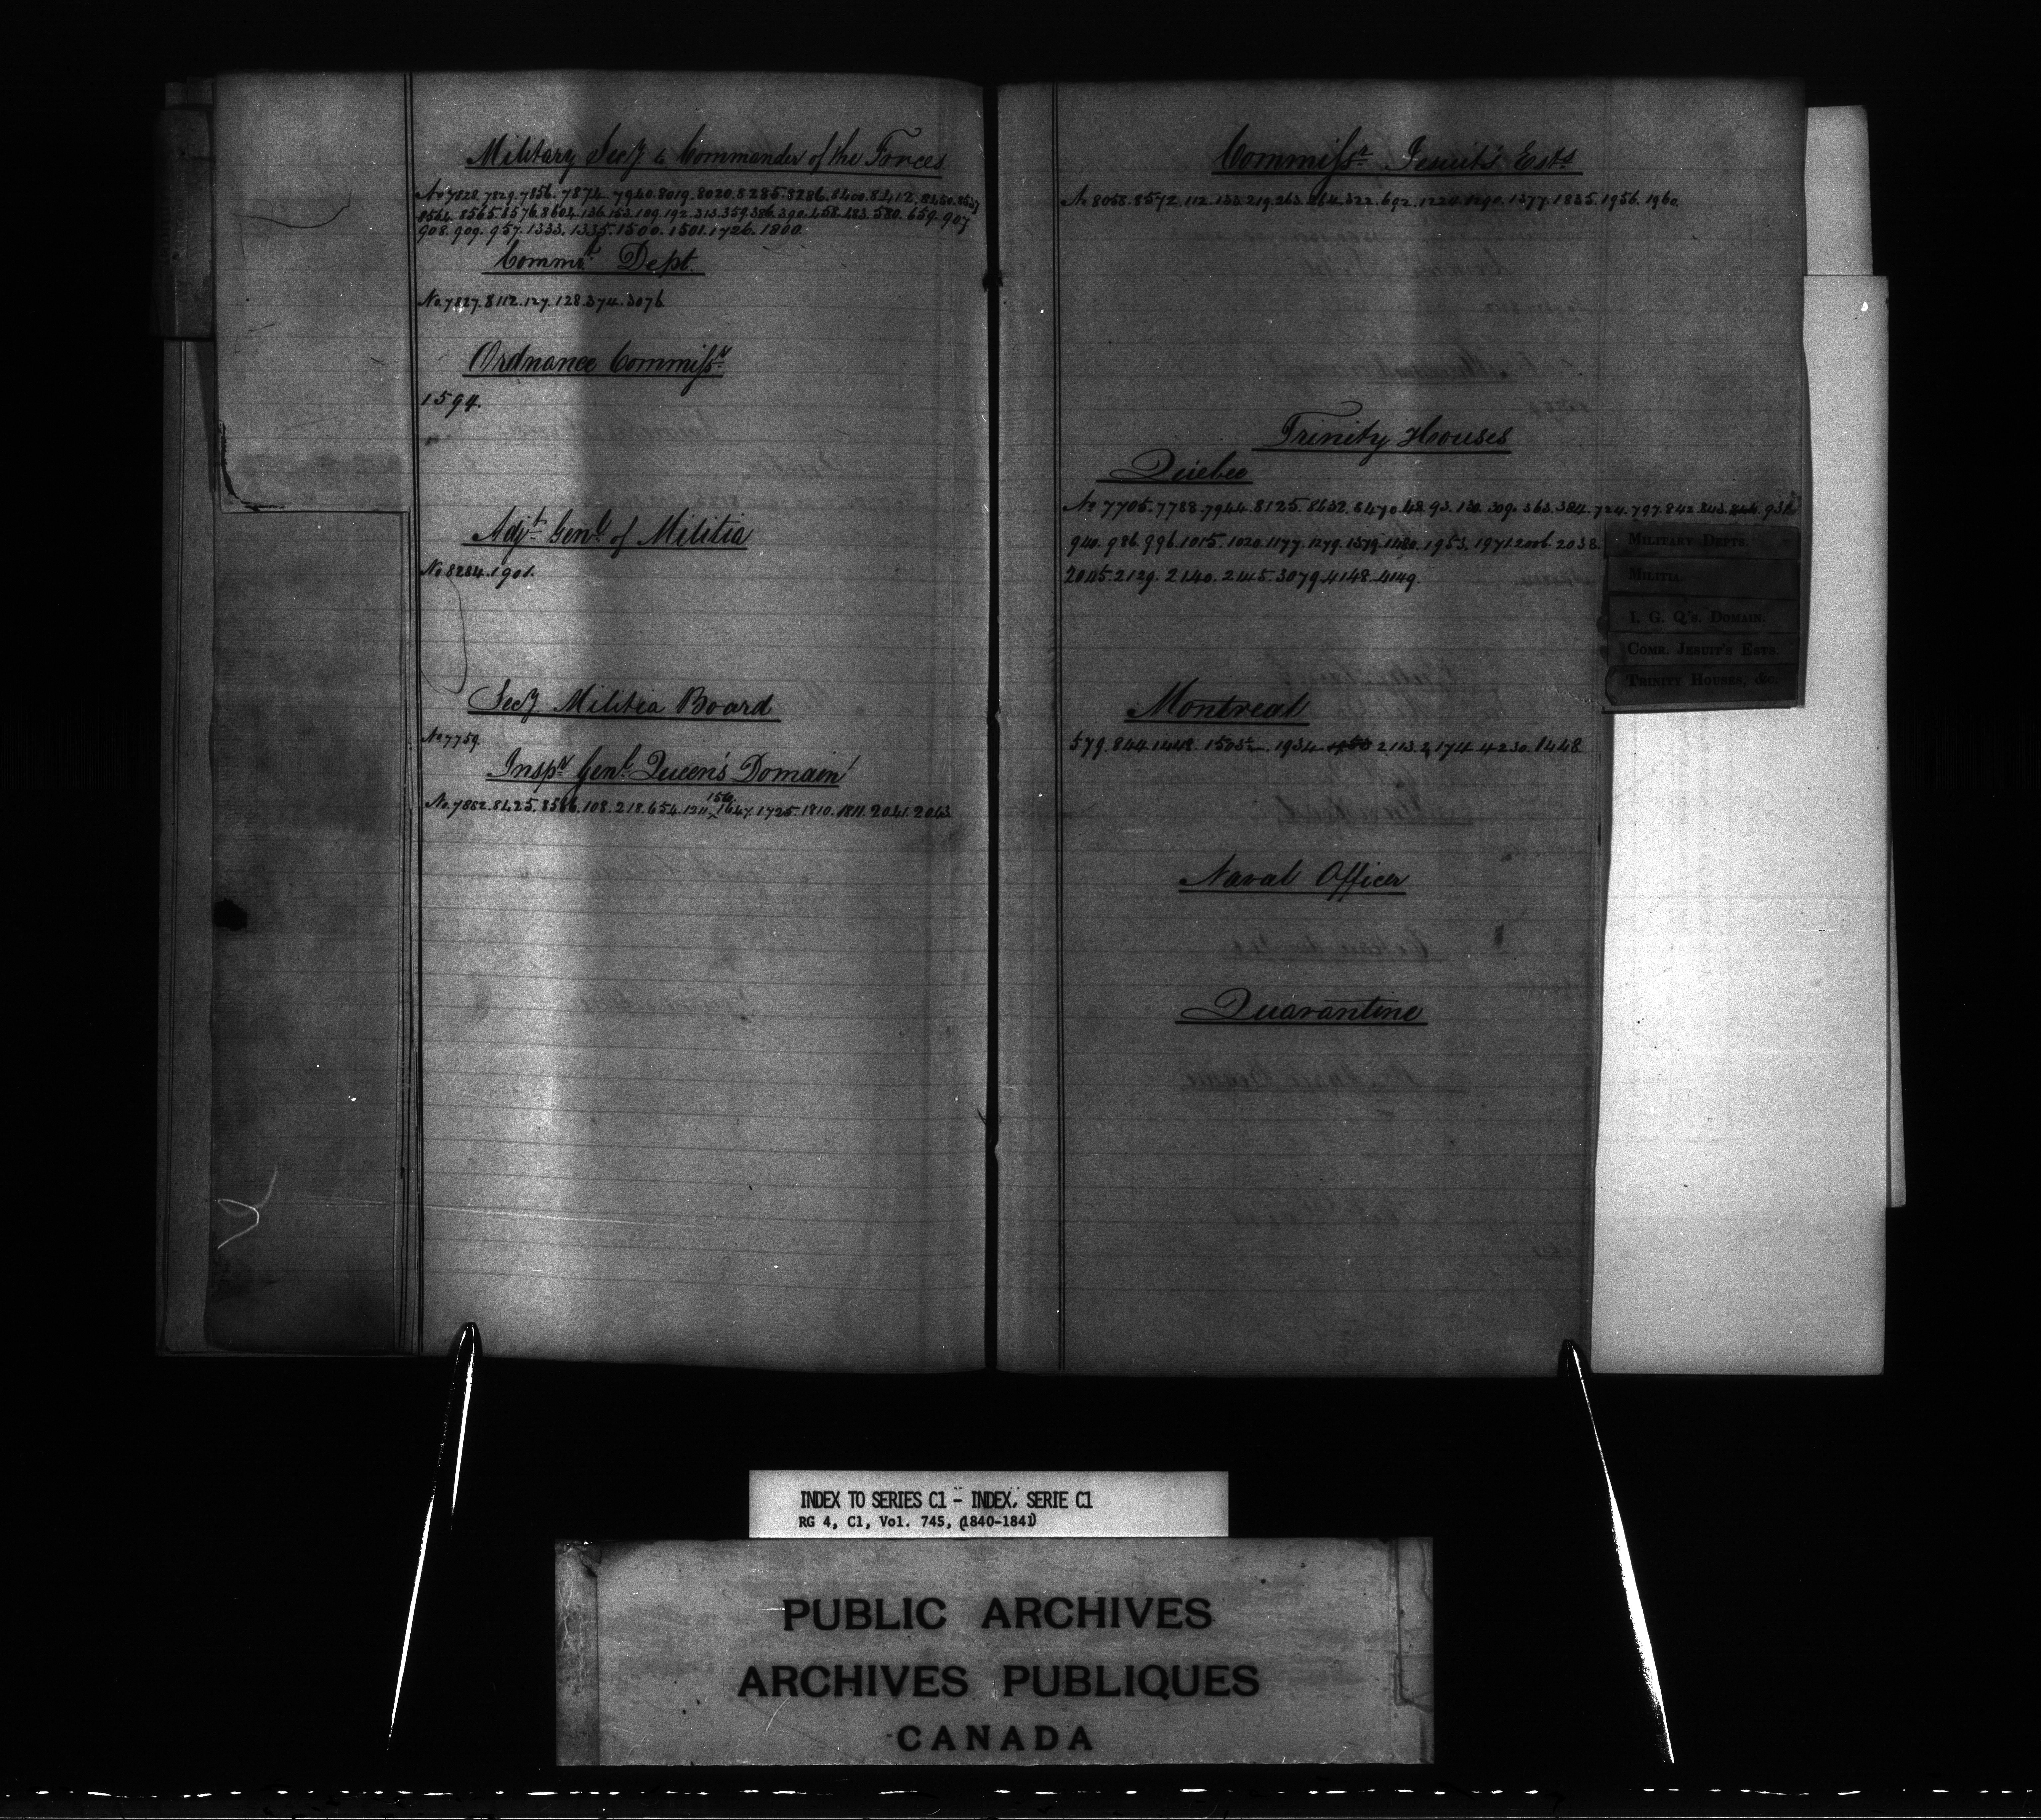 Military Secy to Commander of the Forces
No 7828. 7829. 7856. 7874. 7940. 8019. 8020. 8285. 8286. 8400. 8412. 8450. 8527
8564. 8565. 8576. 8604. 136. 153. 189. 192. 313. 359. 386. 390. 458. 483. 580. 659. 907
908. 909. 957. 1333. 1335. 1500. 1501. 1726. 1800.
Commt Dept.
No 7827. 8112. 127. 128. 374. 3076
Ordnance Commissr
1594.
Adjt Genl of Militia
No 8284. 1901.
Secy. Militia Board
No 7759.
Inspr Genl Queen's Domain
156
No. 7852. 8425. 8586. 108. 218. 654. 1241. 1647. 1725. 1810. 1811. 2041. 2043
Commissr Jesuit's Ests
No 8058. 8572. 112. 133. 219. 263. 264. 322. 692. 1224. 1290. 1377. 1835. 1956. 1960.
Trinity Houses
Quebec
No 7705. 7788. 7944. 8125. 8432. 8470. 48. 93. 130. 309. 363. 384. 724. 797. 842. 843. 846. 938
940. 986. 996. 1015. 1020. 1177. 1279. 1379. 1480. 1953. 1971. 2006. 2038.
2045. 2129. 2140. 2445. 3079. 4148. 4149.
MILITARY DEPTS.
MILITIA.
I. G. Q's. DOMAIN.
COMR. JESUIT'S ESTS.
TRINITY HOUSES, &C.
Montreal
579. 844. 1448. 1505. 1934. 2113. 2174. 4230. 1448
Naval Officer
Quarantine
INDEX TO SERIES C1 - INDEX, SERIE C1
RG 4, C1, Vol. 745, (1840-1841)
PUBLIC ARCHIVES
ARCHIVES PUBLIQUES
CANADA